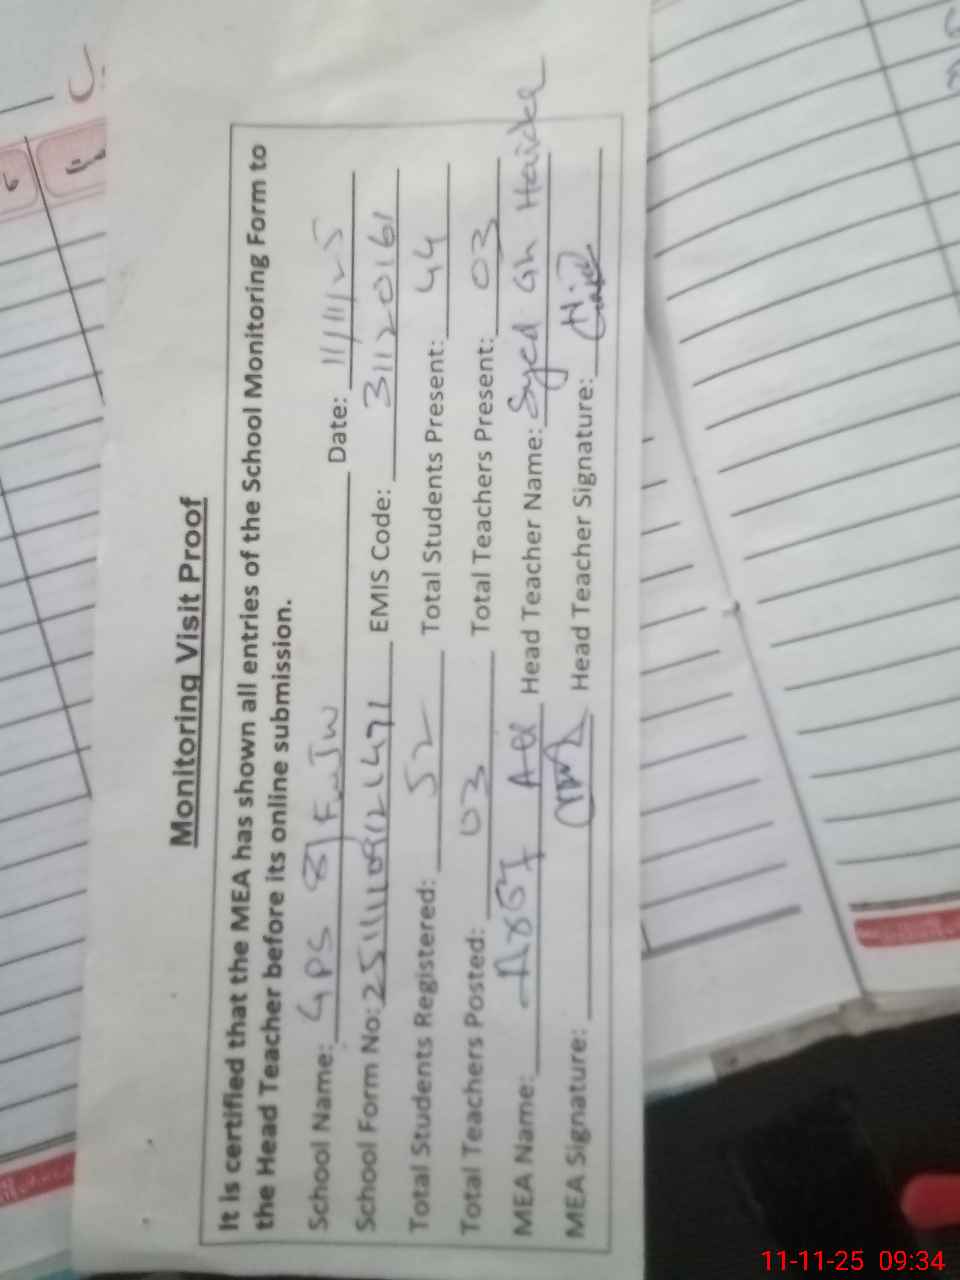 Monitoring Visit Proof
It is certified that the MEA has shown all entries of the School Monitoring Form to
the Head Teacher before its online submission.
School Name: GPS 8/FwJw Date: 11/11/25
School Form No: EMIS Code: 31120161
Total Students Registered: 52 Total Students Present: 44
Total Teachers Posted: 03 Total Teachers Present: 03
MEA Name: Head Teacher Name: Syed Gh Haider
MEA Signature: Head Teacher Signature:
11-11-25 09:34